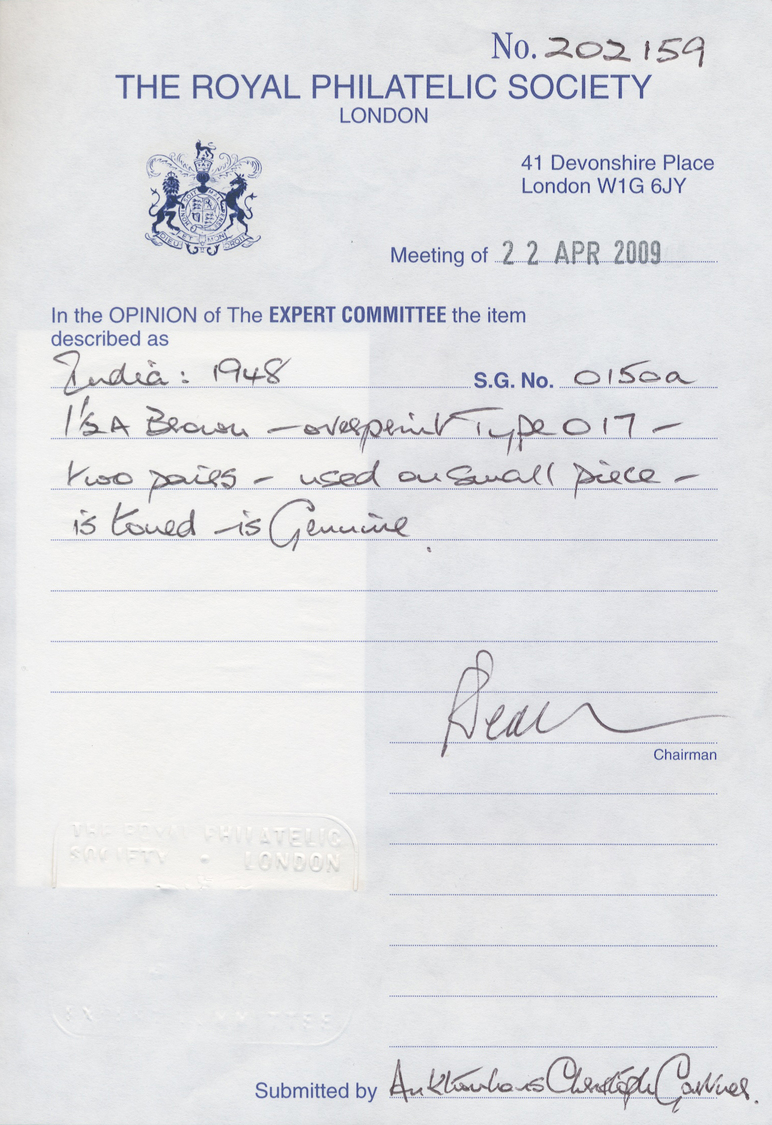 No. 202159
THE ROYAL PHILATELIC SOCIETY
LONDON
41 Devonshire Place
London W1G 6JY
DIEU ET MON DROIT
Meeting of 22 APR 2009
In the OPINION of The EXPERT COMMITTEE the item
described as
India: 1948 S.G. No. O150a
1½A Brown - overprint Type O17 -
two pairs - used on small piece -
is toned - is Genuine.
Chairman
THE ROYAL PHILATELIC
SOCIETY • LONDON
EXPERT COMMITTEE
Submitted by Auktionhaus Christoph Gärtner.